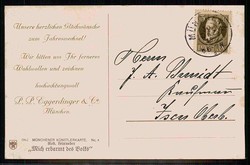 Unsere herzlichen Glückwünsche
zum Jahreswechsel!
Wir bitten um Ihr ferneres
Wohlwollen und zeichnen
hochachtungsvoll
P. P. Eggerdinger & Co.
München
"Mich erbarmt des Volks"
MÜN
Herrn
J. A. Schmidt
Kaufmann
Isen Oberb.